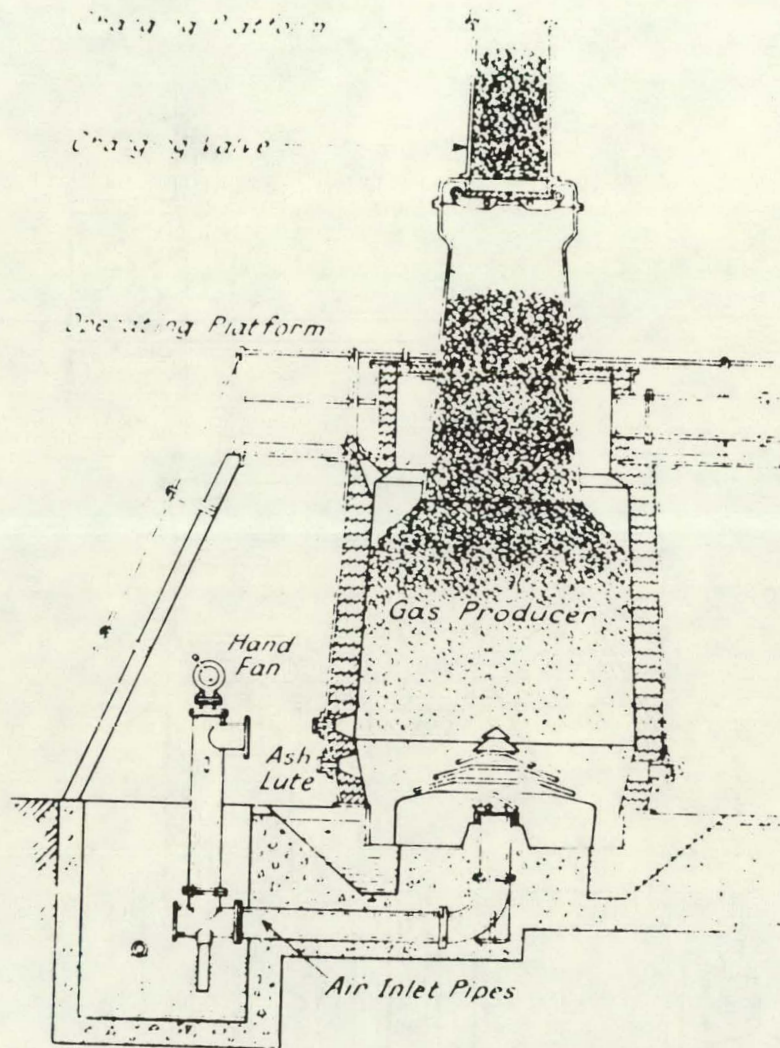 Charging Platform
Charging Valve
Operating Platform
Gas Producer
Hand
Fan
Ash
Lute
Air Inlet Pipes